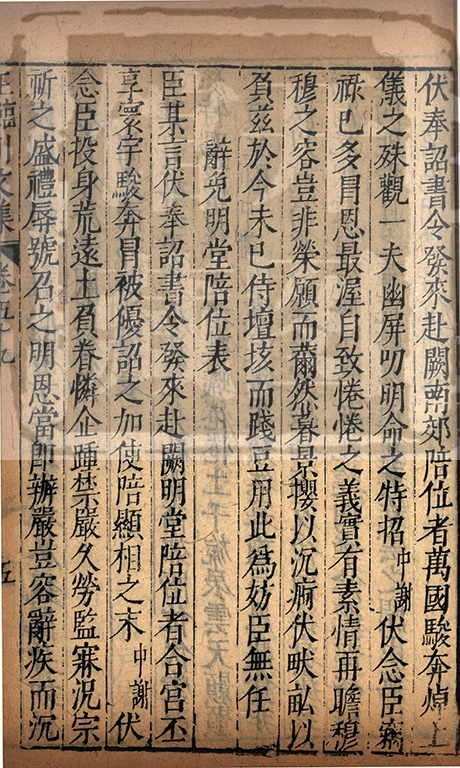 伏奉詔書令發來赴闕南郊陪位者萬國駿奔焯上
儀之殊觀一夫幽屏叨明命之特招中謝伏念臣竊
祿已多冒恩最渥自致惓惓之義實有素情再瞻穆
穆之容豈非榮願而薾然暮景攖以沉痾伏畎畝以
負茲於今未已侍壇垓而踐豆用此為妨臣無任
辭免明堂陪位表
臣某言伏奉詔書令發來赴闕明堂陪位者合宮丕
享寰宇駿奔冒被優詔之加使陪顯相之末中謝伏
念臣投身荒遠上負眷憐企踵禁嚴久勞監寐況宗
祈之盛禮辱號召之明恩當即辦嚴豈容辭疾而沉
王臨川文集 卷五十九 五